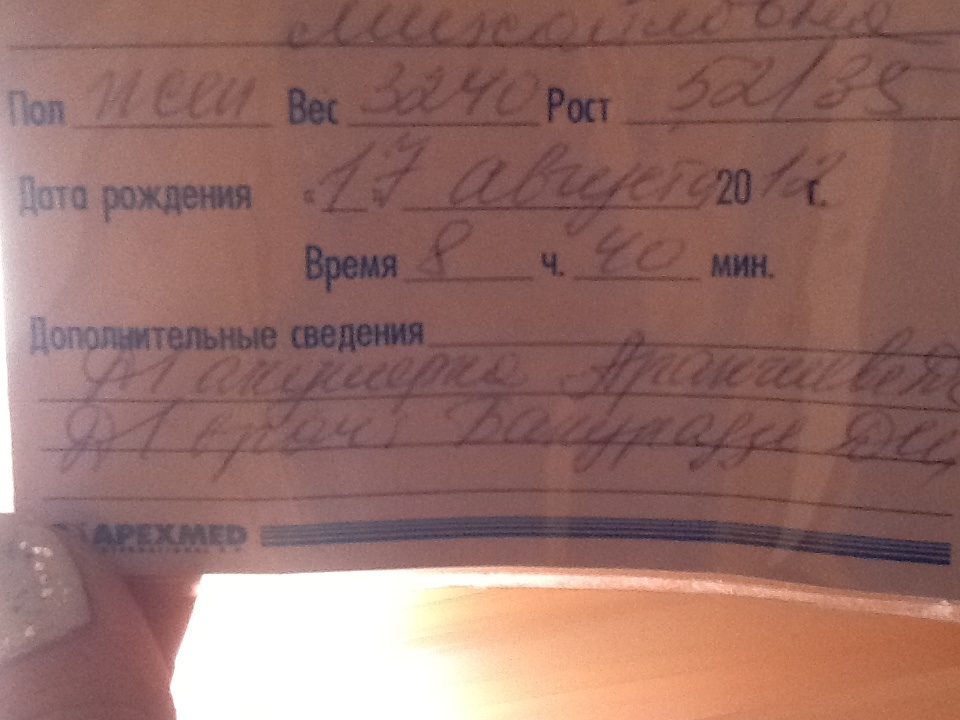 Михайловна
Пол жен Вес 3240 Рост 52/35
Дата рождения 17 августа 2012 г.
Время 8 ч. 40 мин.
Дополнительные сведения
акушерка
врач:
APEXMED